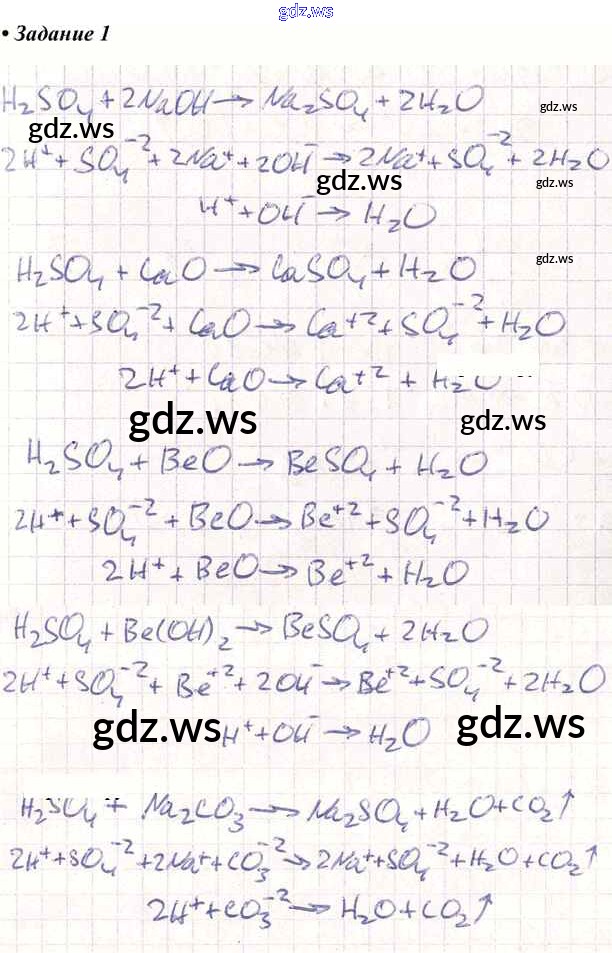 gdz.ws
• Задание 1
H₂SO₄ + 2NaOH → Na₂SO₄ + 2H₂O
gdz.ws
gdz.ws
2H⁺ + SO₄⁻² + 2Na⁺ + 2OH⁻ → 2Na⁺ + SO₄⁻² + 2H₂O
gdz.ws
gdz.ws
H⁺ + OH⁻ → H₂O
gdz.ws
H₂SO₄ + CaO → CaSO₄ + H₂O
2H⁺ + SO₄⁻² + CaO → Ca⁺² + SO₄⁻² + H₂O
2H⁺ + CaO → Ca⁺² + H₂O
gdz.ws
gdz.ws
H₂SO₄ + BeO → BeSO₄ + H₂O
2H⁺ + SO₄⁻² + BeO → Be⁺² + SO₄⁻² + H₂O
2H⁺ + BeO → Be⁺² + H₂O
H₂SO₄ + Be(OH)₂ → BeSO₄ + 2H₂O
2H⁺ + SO₄⁻² + Be⁺² + 2OH⁻ → Be⁺² + SO₄⁻² + 2H₂O
gdz.ws
H⁺ + OH⁻ → H₂O
gdz.ws
H₂SO₄ + Na₂CO₃ → Na₂SO₄ + H₂O + CO₂↑
2H⁺ + SO₄⁻² + 2Na⁺ + CO₃⁻² → 2Na⁺ + SO₄⁻² + H₂O + CO₂↑
2H⁺ + CO₃⁻² → H₂O + CO₂↑